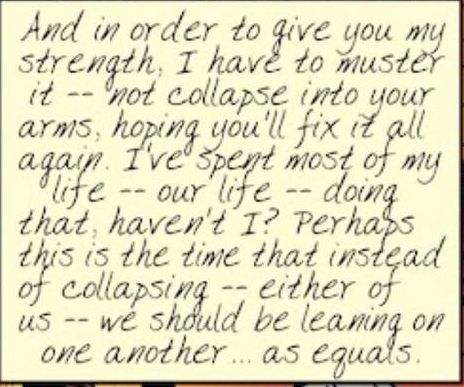 And in order to give you my
strength, I have to muster
it -- not collapse into your
arms, hoping you'll fix it all
again. I've spent most of my
life -- our life -- doing
that, haven't I? Perhaps
this is the time that instead
of collapsing -- either of
us -- we should be leaning on
one another... as equals.